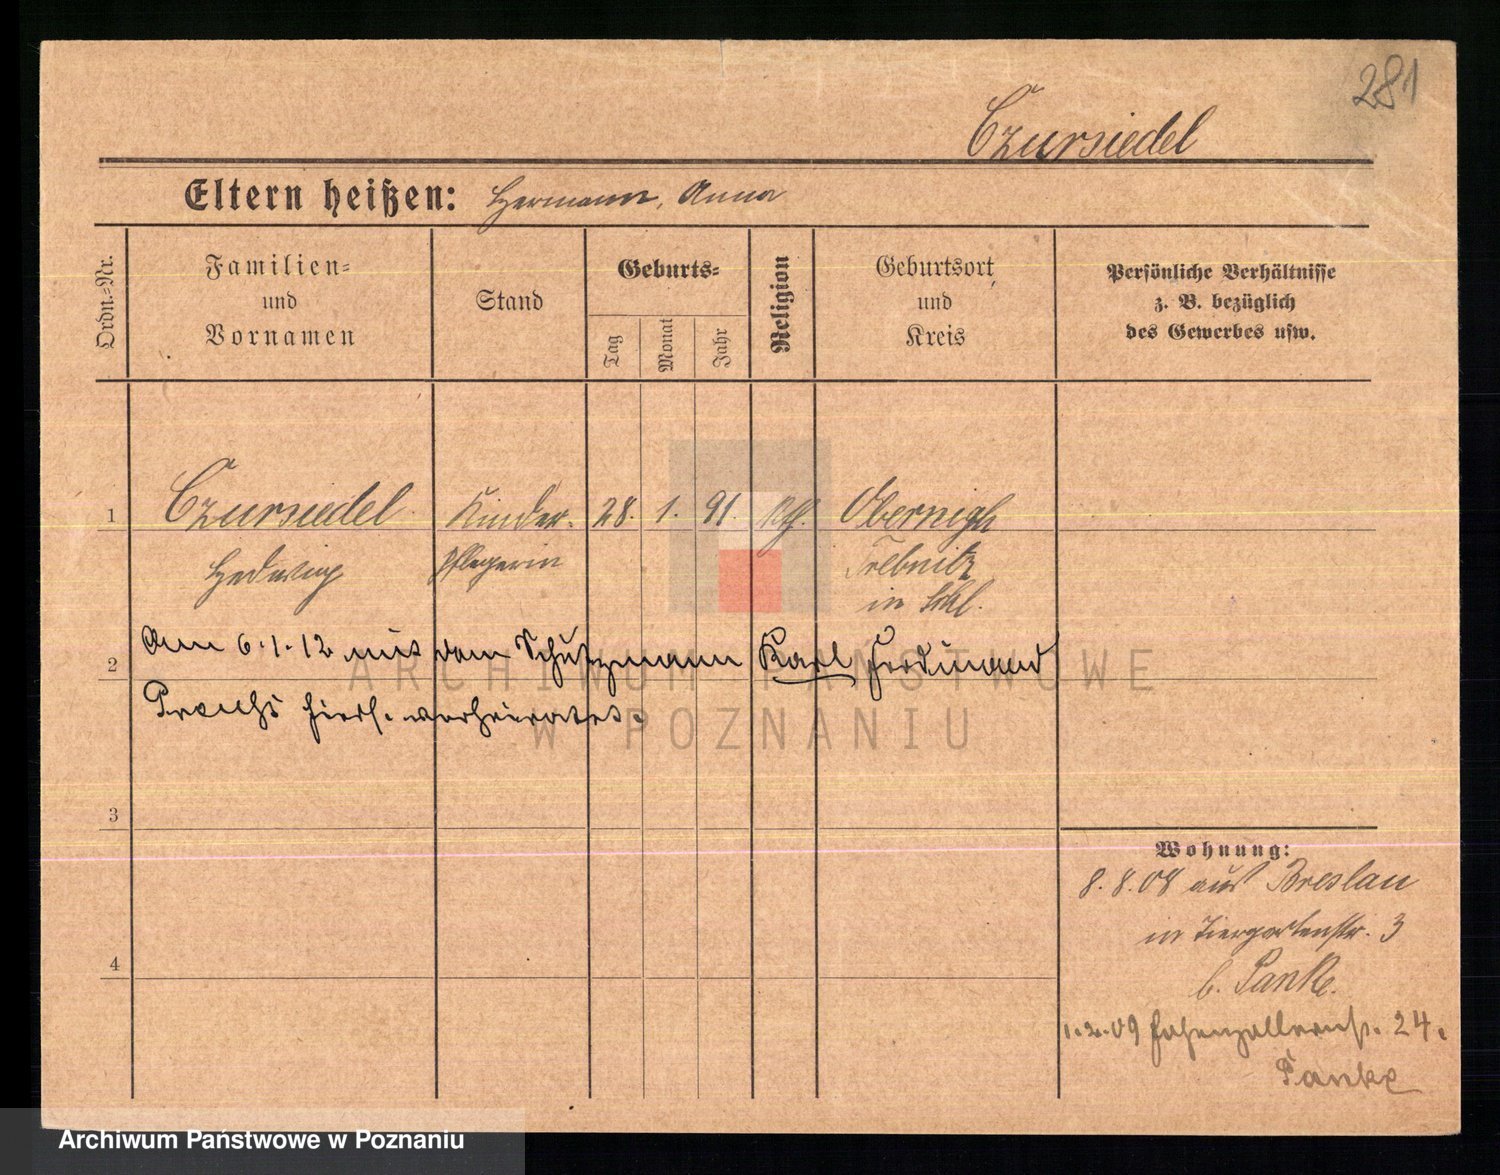 281
Czursiedel
Eltern heißen: Hermann, Anna
Ordn.-Nr.
Familien- und Vornamen
Stand
Geburts-
Tag
Monat
Jahr
Religion
Geburtsort und Kreis
Persönliche Verhältnisse
z. B. bezüglich
des Gewerbes usw.
1 Czursiedel Kinder- 28. 1. 91. Obernigk
Hedwig pflegerin Trebnitz
in Schl.
2 Am 6.1.12 mit dem Schutzmann Karl Ferdinand
hiers. verheiratet.
3
4
Wohnung:
8.8.08 aus Breslau
in Tiergartenstr. 3
b. Panke.
1.2.09 Hohenzollernstr. 24.
Panke
ARCHIWUM PAŃSTWOWE
W POZNANIU
Archiwum Państwowe w Poznaniu